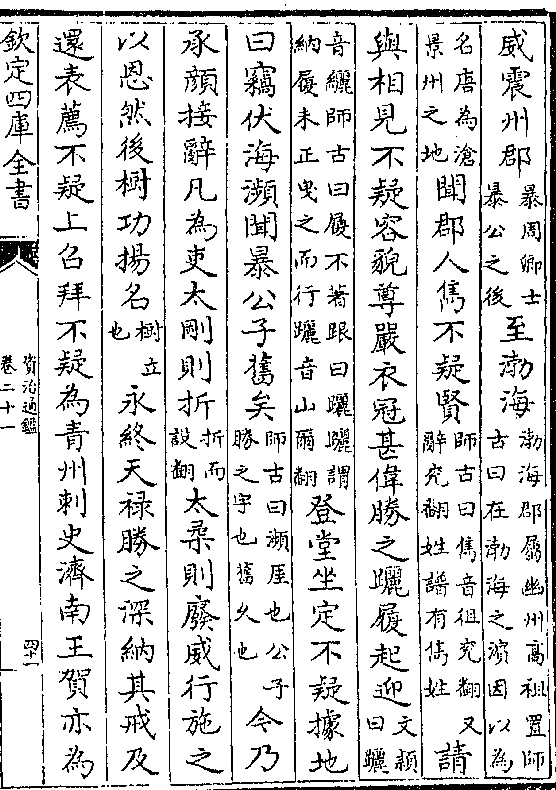 威震州郡暴周卿士暴公之後至渤海渤海郡屬幽州高祖置師古曰在渤海之濵因以為
名唐為滄景州之地聞郡人雋不疑賢師古曰雋音徂兖翻又辭兖翻姓譜有雋姓請
與相見不疑容貌尊嚴衣冠甚偉勝之躧履起迎文穎曰躧
音纚師古曰履不著跟曰躧躧謂納履未正曳之而行躧音山爾翻登堂坐定不疑據地
曰竊伏海瀕聞暴公子舊矣師古曰瀕厓也公子勝之字也舊久也今乃
承顔接辭凡為吏太剛則折折而設翻太柔則廢威行施之
以恩然後樹功揚名樹立也永終天禄勝之深納其戒及
還表薦不疑上召拜不疑為青州刺史濟南王賀亦為
欽定四庫全書
資治通鑑
卷二十一
四十一